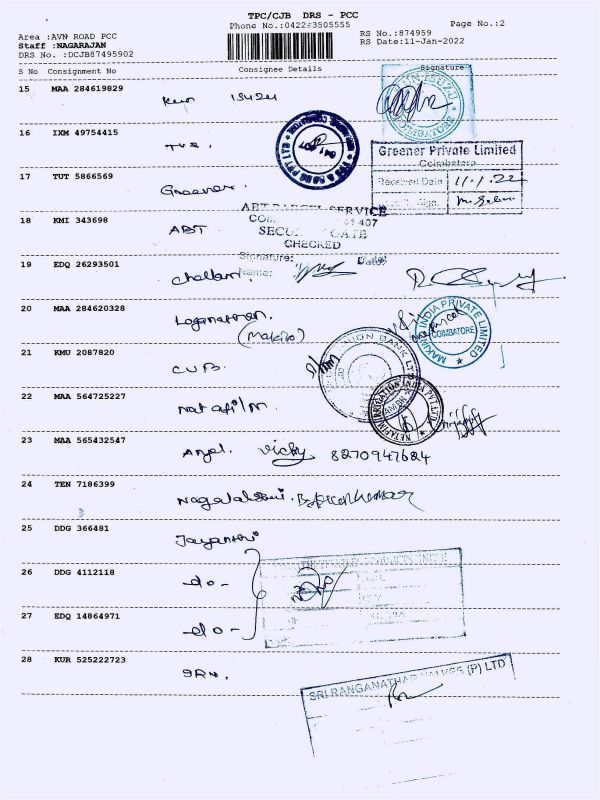 TPC/CJB DRS - PCC
Phone No.:042243505555 Page No.:2
Area :AVN ROAD PCC RS No.:874959
Staff :NAGARAJAN RS Date:11-Jan-2022
DRS No. :DCJB87495902
S No Consignment No Consignee Details Signature
15 MAA 284619829
ISUZU
16 IXM 49754415
TVS.
17 TUT 5866569
Greener.
Greener Private Limited
Coimbatore
Received Date 11.1.22
Sign.
18 KMI 343698
ABT
ABT PARCEL SERVICE
407
SECU GATE
CHECKED
Signature:
Name:
19 EDQ 26293501
Challani
20 MAA 284620328
Loganathan.
(Makino)
MAKINO INDIA PRIVATE LIMITED
COIMBATORE
21 KMU 2087820
CUB.
UNION BANK LTD
22 MAA 564725227
Natafilm
NETAFIM IRRIGATION INDIA PVT. LTD.
23 MAA 565432547
Anjel. Vicky 8270947624
24 TEN 7186399
25 DDG 366481
Jayanthi
26 DDG 4112118
-do-
27 EDQ 14864971
-do-
28 KUR 525222723
SRV.
SRI RANGANATHAR VALVES (P) LTD